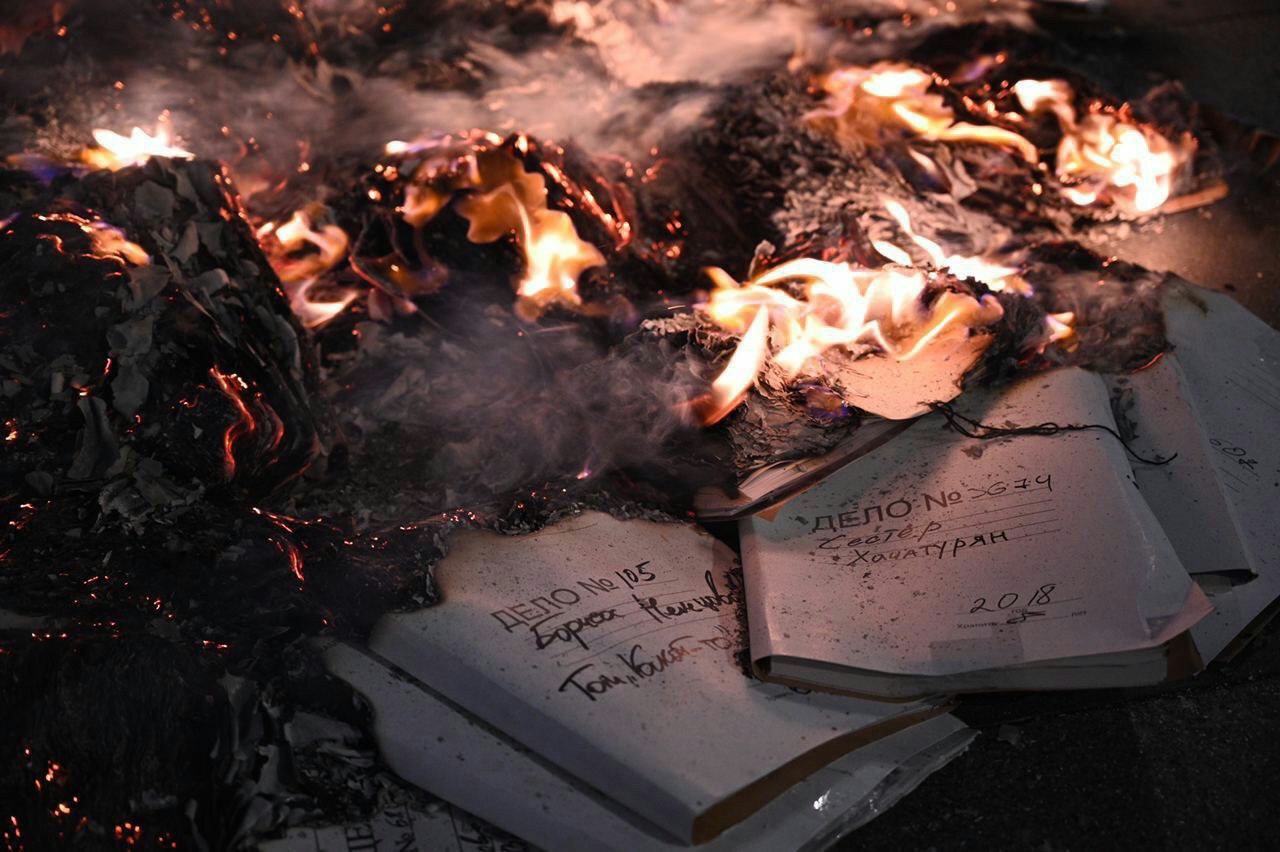 ДЕЛО № 3674
Сестёр
Хачатурян
2018
Хранить
ДЕЛО № 105
Бориса Немцова
Том „Какой-то"